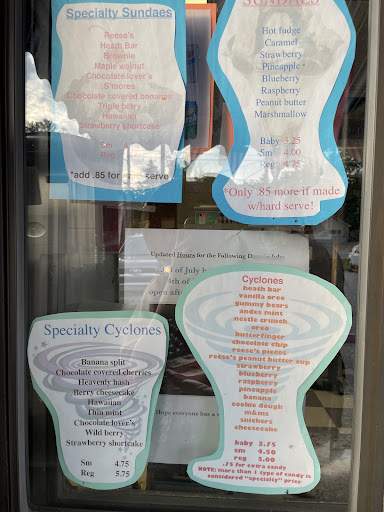 Specialty Sundaes
Reese's
Heath Bar
Brownie
Maple walnut
Chocolate lover's
S'mores
Chocolate covered bananas
Triple berry
Hawaiian
Strawberry shortcake
Sm
Reg
*add .85 for serve
SUNDAES
Hot fudge
Caramel
Strawberry
Pineapple
Blueberry
Raspberry
Peanut butter
Marshmallow
Baby 3.25
Sm 4.00
Reg 4.75
*Only .85 more if made
w/hard serve!
Updated Hours for the Following
of July
open after
Hope everyone has a
Specialty Cyclones
Banana split
Chocolate covered cherries
Heavenly hash
Berry cheesecake
Hawaiian
Thin mint
Chocolate lover's
Wild berry
Strawberry shortcake
Sm 4.75
Reg 5.75
Cyclones
heath bar
vanilla oreo
gummy bears
andes mint
nestle crunch
oreo
butterfinger
chocolate chip
reese's pieces
reese's peanut butter cup
strawberry
blueberry
raspberry
pineapple
banana
cookie dough
m&ms
snickers
cheesecake
baby 3.75
sm 4.50
reg 5.00
.75 for extra candy
NOTE: more than 1 type of candy is
considered "specialty" price